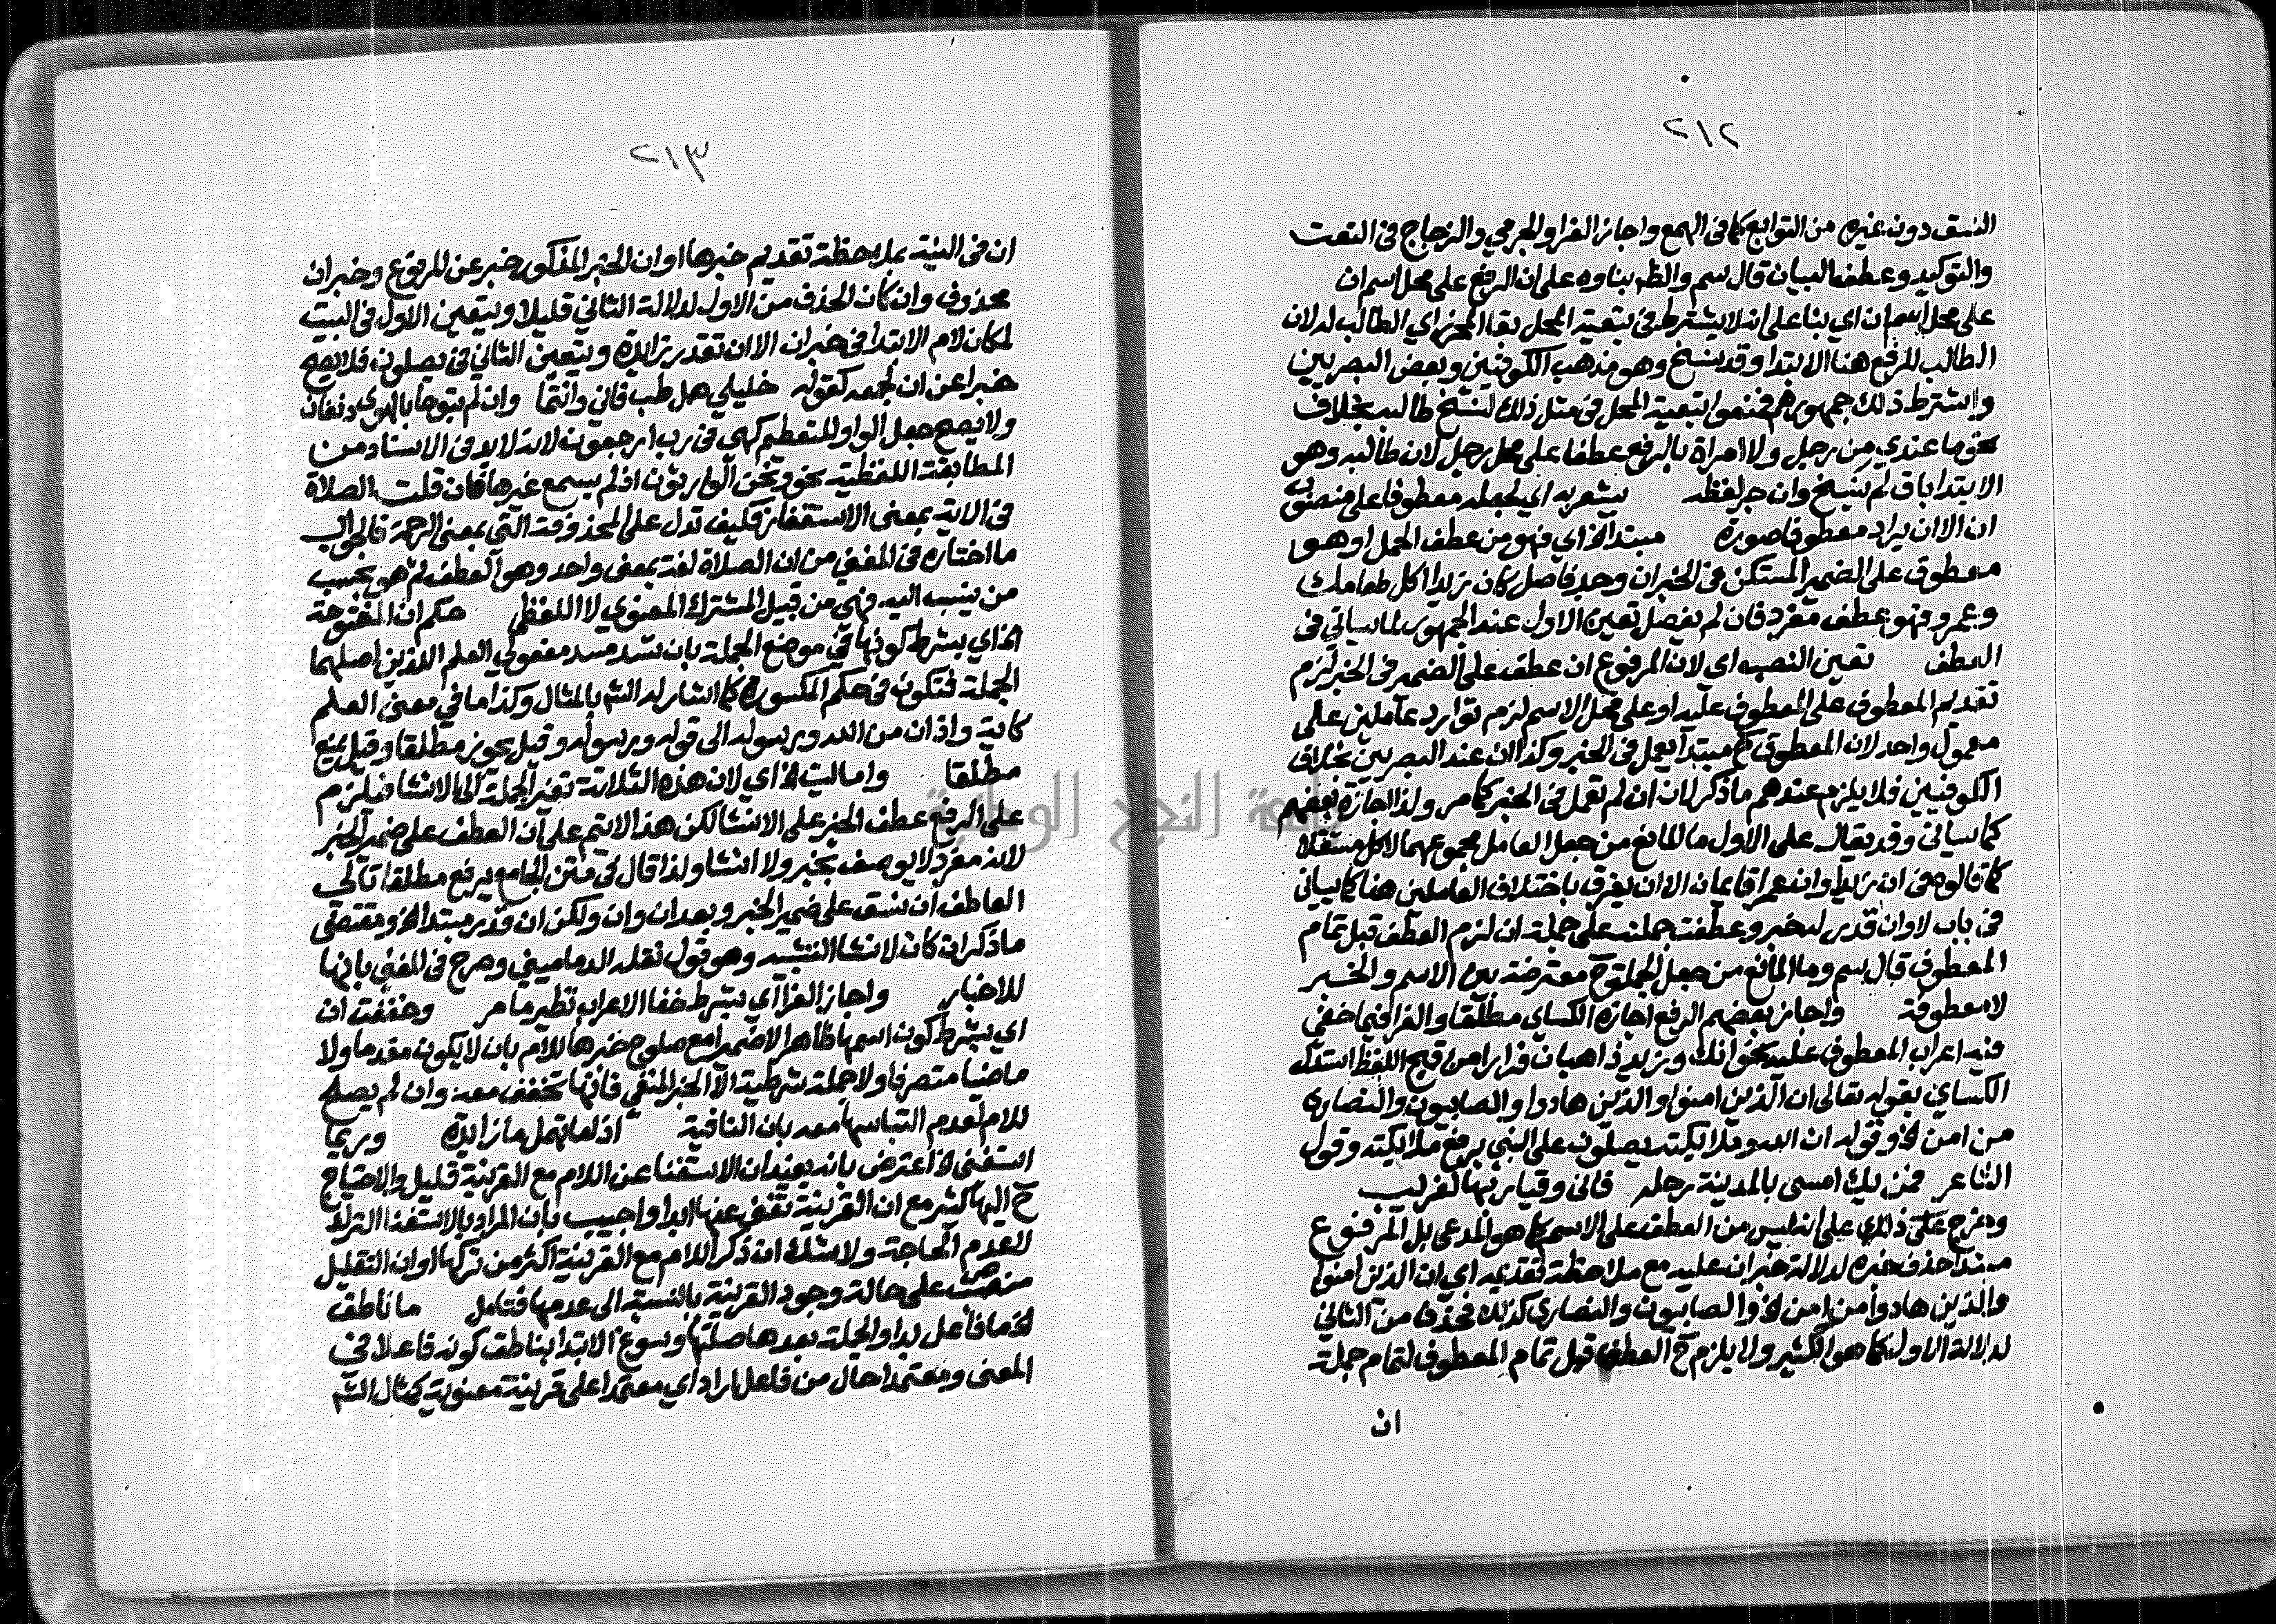 ٢١٢
النسق دون غيره من التوابع كما فى الهمع واجاز الفرا والجرمي والزجاج فى النعت
والتوكيد وعطف البيان قال سم والظ بناوه على ان الرفع على محل اسم ان
على محل اسم ان اي بنا على انه لا يشترط فى بتعية المحل بقا المحرز اي الطالب له لان
الطالب للرفع هنا الابتدا وقد ينسخ وهو مذهب الكوفيين وبعض البصريين
واشترط ذلك جمهورهم فمنعوا بتعية المحل فى مثل ذلك لنسخ طالبه بخلاف
نحو ما عندي من رجل ولا امراة بالرفع عطفا على محل رجل لان طالبه وهو
الابتدا باق لم ينسخ وان جر لفظه يشعر به اي لجعله معطوفا على منصوب
ان الا ان يراد معطوفا صورة مبتدا الخ اي فهو من عطف الجمل او هو
معطوف على الضمير المستكن فى الخبر ان وجد فاصل كان زيدا اكل طعامك
وعمرو فهو عطف مفرد فان لم يفصل تعين الاول عند الجمهور لما سياتي فى
العطف تعين النصب اى لان المرفوع ان عطف على الضمير فى الخبر لزم
تقديم المعطوف على المعطوف عليه او على محل الاسم لزم توارد عاملين على
معمول واحد لان المعطوف ح مبتدا يعمل فى الخبر وكذا ان عند البصريين بخلاف
الكوفيين فلا يلزم عندهم ما ذكر لان ان لم تعمل فى الخبر كما مر ولذا اجازه بعضهم
كما سياتى وقد يقال على الاول ما المانع من جعل العامل مجموعهما لا كل مستقلا
كما قالوه فى ان زيدا وان عمرا قائمان الا ان يفرق باختلاف العاملين هنا كما سياتى
فى باب لا وان قدر له خبر وعطفت جملته على جملة ان لزم العطف قبل تمام
المعطوف قال سم وما المانع من جعل الجملة ح معترضة بين الاسم والخبر
لا معطوفة واجاز بعضهم الرفع اجازه الكساي مطلقا والفرا فيما خفي
فيه اعراب المعطوف عليه نحو انك وزيد ذاهبان فرارا من قبح اللفظ استدل
الكساي بقوله تعالى ان الذين امنوا والذين هادوا والصابيون والنصارى
من امن الخ وقوله ان الله وملايكته يصلون على النبي برفع ملايكته وقول
الشاعر فمن يك امسى بالمدينة رحله فاني وقيار بها لغريب
وخرج ذلك على انه ليس من العطف على الاسم كما هو المدعى بل المرفوع
مبتدا حذف خبره لدلالة خبر ان عليه مع ملاحظة تقديمه اي ان الذين امنوا
والذين هادوا من امن الخ والصابيون والنصارى كذلك فحذف من الثاني
لدلالة الاول كما هو الكثير ولا يلزم ح العطف قبل تمام المعطوف لتمام جملة
ان
٢١٣
ان فى النية بملاحظة تقديم خبرها او ان الخبر المذكور خبر عن المرفوع وخبر ان
محذوف وان كان الحذف من الاول لدلالة الثاني قليلا ويتعين الاول فى البيت
لمكان لام الابتدا فى خبر ان الا ان تقدر زايدة ويتعين الثاني فى يصلون فلا يصح
خبرا عن ان لجمعه كقوله خليلي هل طب فاني وانتما وان لم تبوحا بالهوى دنفان
ولا يصح جعل الواو للتعظيم كهى فى رب ارجعون لانه لا بد فى الاسناد من
المطابقة اللفظية نحو ونحن الوارثون اذ لم يسمع غيرها فان قلت الصلاة
فى الاية بمعنى الاستغفار فكيف تدل على المحذوفة التي بمعنى الرحمة فالجواب
ما اختاره فى المغني من ان الصلاة لغة بمعنى واحد وهو العطف ثم هو بحسب
من ينسب اليه فهى من قبيل المشترك المعنوي لا اللفظي حكم ان المفتوحة
الخ اي بشرط كونها في موضع الجملة بان تسد مسد مفعولي العلم اللذين اصلهما
الجملة فتكون فى حكم المكسورة كما اشار له الش بالمثال وكذا ما في معنى العلم
كاية واذان من الله ورسوله الى قوله ورسوله وقيل يجوز مطلقا وقيل يمنع
مطلقا واما ليت الخ اي لان هذه الثلاثة تغير الجملة الى الانشا فيلزم
على الرفع عطف الخبر على الانشا لكن هذا لا يتم على ان العطف على ضمير الخبر
لانه مفرد لا يوصف بخبر ولا انشا ولذا قال فى متن الجامع يرفع مطلقا تالي
العاطف ان نسق على ضمير الخبر وبعد ان وان ولكن ان قدر مبتدا الخ ومقتضى
ما ذكر ان كان لانشا التشبيه وهو قول نقله الدماميني وصرح فى المغني بانها
للاخبار واجاز الفرا اي بشرط خفا الاعراب نظير ما مر وخففت ان
اي بشرط كون اسمها ظاهرا لا ضميرا مع صلوح خبرها للام بان لا يكون مقدما ولا
ماضيا متصرفا ولا جملة شرطية الا الخبر المنفي فانها تخفف معه وان لم يصلح
للام لعدم التباسها معه بان النافية اذا ما تهمل ما زايدة وربما
استغنى الخ اعترض بانه يفيد ان الاستغنا عن اللام مع القرينة قليل والاحتياج
ح اليها كثير مع ان القرينة تغني عنها ابدا واجيب بان المراد بالاستغنا الترك
لعدم الحاجة ولا شك ان ذكر اللام مع القرينة اكثر من تركها او ان التقليل
منصب على حالة وجود القرينة بالنسبة الى عدمها فتامل ما ناطق
الخ ما فاعل بدا والجملة بعدها صلتها وسوغ الابتدا بناطق كونه فاعلا فى
المعنى ومعتمدا حال من فاعل اراد اي معتمدا على قرينة معنوية كمثال الش